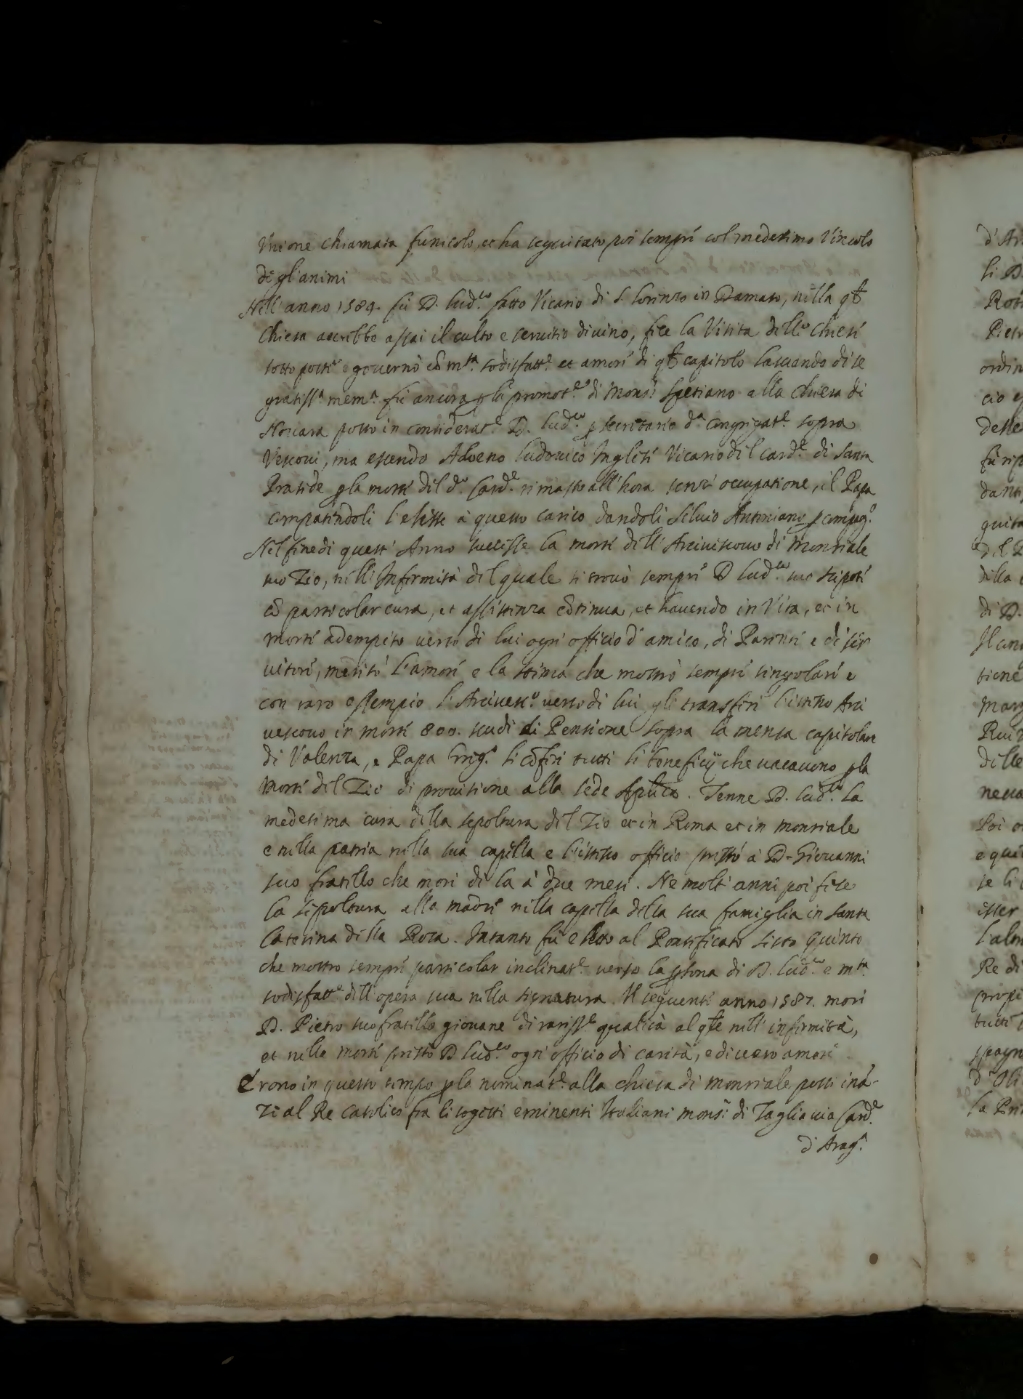 Unione chiamata funicolo, et ha seguitato poi sempre col medesimo Vincolo
degl'animi
Nell'anno 1584. fù D. Lud.co fatto Vicario di S. Lorenzo in Damaso, nella q.le
Chiesa accrebbe assai il culto e servitio divino, fece la Visita delle Chiese
sotto poste e governò cō m.ta sodisfatt.e et amore di q.l capitolo lasciando di se
gratiss.a mem.a fù ancora p la promot.e di Mons.r Spetiano alla Chiesa di
Novara posto in considerat.e D. Lud.co p secretario d.a congregat.e sopra
Vescovi, ma essendo Adoeno Ludovico Inglese Vicario del Card.le di Santa
Praside p la morte del d.o Card.le rimasto all'hora senza occupatione, il Papa
compatendoli l'elesse à questo carico dandoli Silvio Antoniano p compag.o
Nel fine di quest'Anno successe la morte dell'Arcivescovo di Monreale
suo Zio, nell'Infermità del quale si trovò sempre D. Lud.co suo Nepote
cō particolar cura, et assistenza cōtinua, et havendo in Vita, et in
morte adempito verso di lui ogni officio d'amico, di Parente e di ser
vitore, meritò l'amore e la stima che mostrò sempre singolare e
con raro essempio l'Arcivesc.o verso di lui gli transferì l'istesso Arci
vescovo in morte 800. scudi di Pensione sopra la mensa capitolare
di Valenza, e Papa Greg.o li cōferì tutti li beneficij che vacavono p la
Morte del Zio di provisione alla sede Ap.lica. Tenne D. Lud.co la
medesima cura della sepoltura del Zio et in Roma et in Monreale
e nella patria nella sua capella e l'istesso officio prestò à D. Giovanni
suo fratello che morì di là à due mesi. Ne molti anni poi fece
la sepoltura alla madre nella capella della sua famiglia in Santa
Caterina della Rota. Intanto fù eletto al Pontificato Sisto Quinto
che mostrò sempre particolar inclinat.e verso la p.sona di D. Lud.co e m.ta
sodisfatt.e dell'opera sua nella signatura. Il seguente anno 1587. morì
D. Pietro suo fratello giovane di rariss.e qualità al q.le nell'infermità,
et nella morte prestò D. Lud.co ogn'officio di carità, e di vero amore
Erono in questo tempo p la nominat.e alla chiesa di Monreale posti inā-
zi al Re Catolico fra li sogetti eminenti Italiani Mons.r di Tagliavia Card.le
d'Arag.a